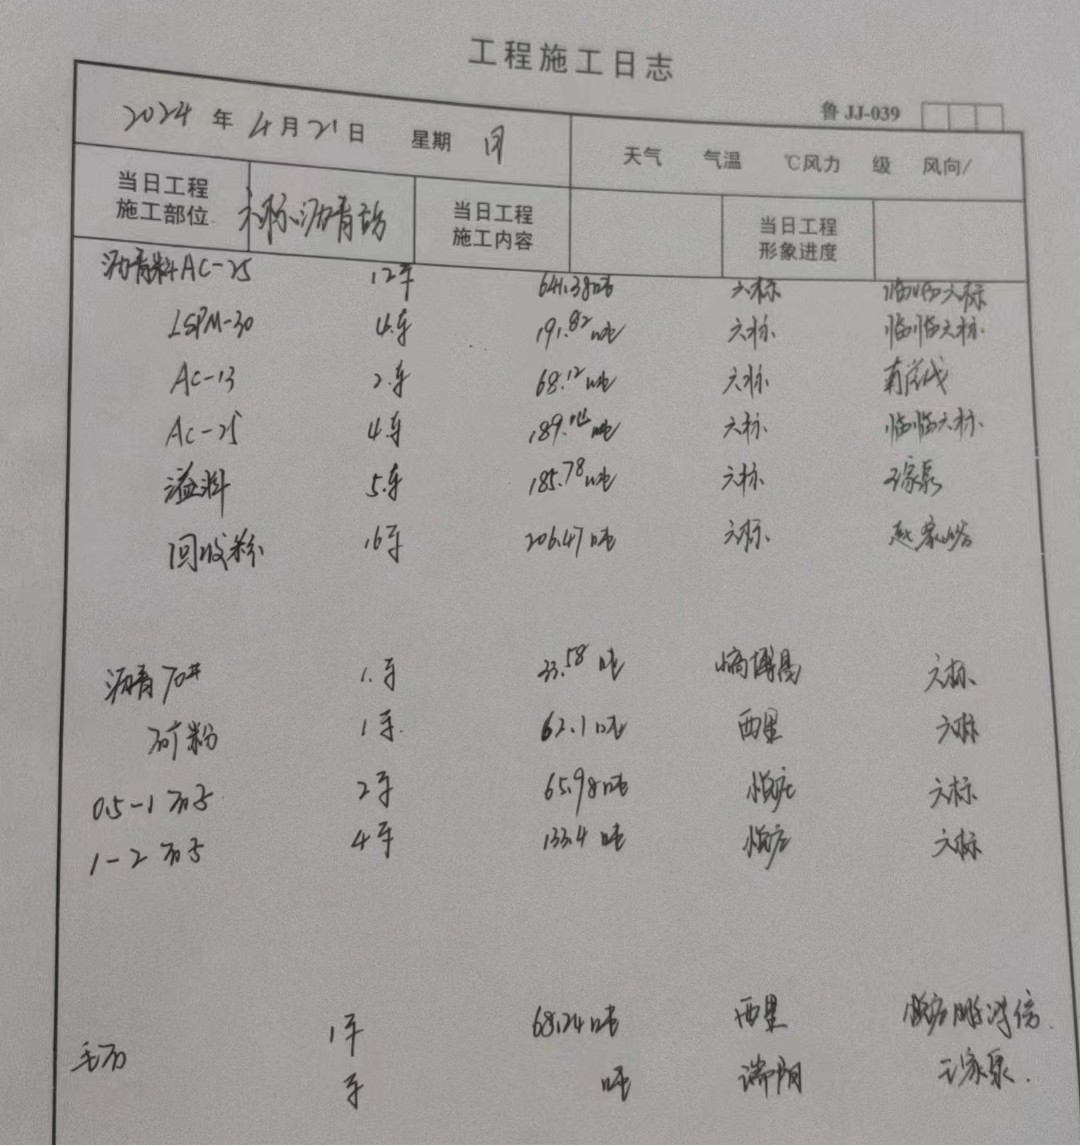 工程施工日志
鲁 JJ-039
2024 年 4 月 21 日 星期 日 天气 气温 ℃风力 级 风向/
当日工程施工部位 六标沥青站 当日工程施工内容 当日工程形象进度
沥青料AC-25 12车 641.38吨 六标 临临六标
LSPM-30 4车 191.82吨 六标 临临六标
AC-13 2车 68.12吨 六标
AC-25 4车 189.04吨 六标 临临六标
溢料 5车 185.78吨 六标 王家泉
回收粉 6车 206.47吨 六标 赵家峪
沥青70# 1车 33.58吨 六标
矿粉 1车 62.1吨 西里 六标
0.5-1石子 2车 65.98吨 六标
1-2石子 4车 133.4吨 六标
1车 68.24吨 西里
毛石 车 吨 端阳 王家泉